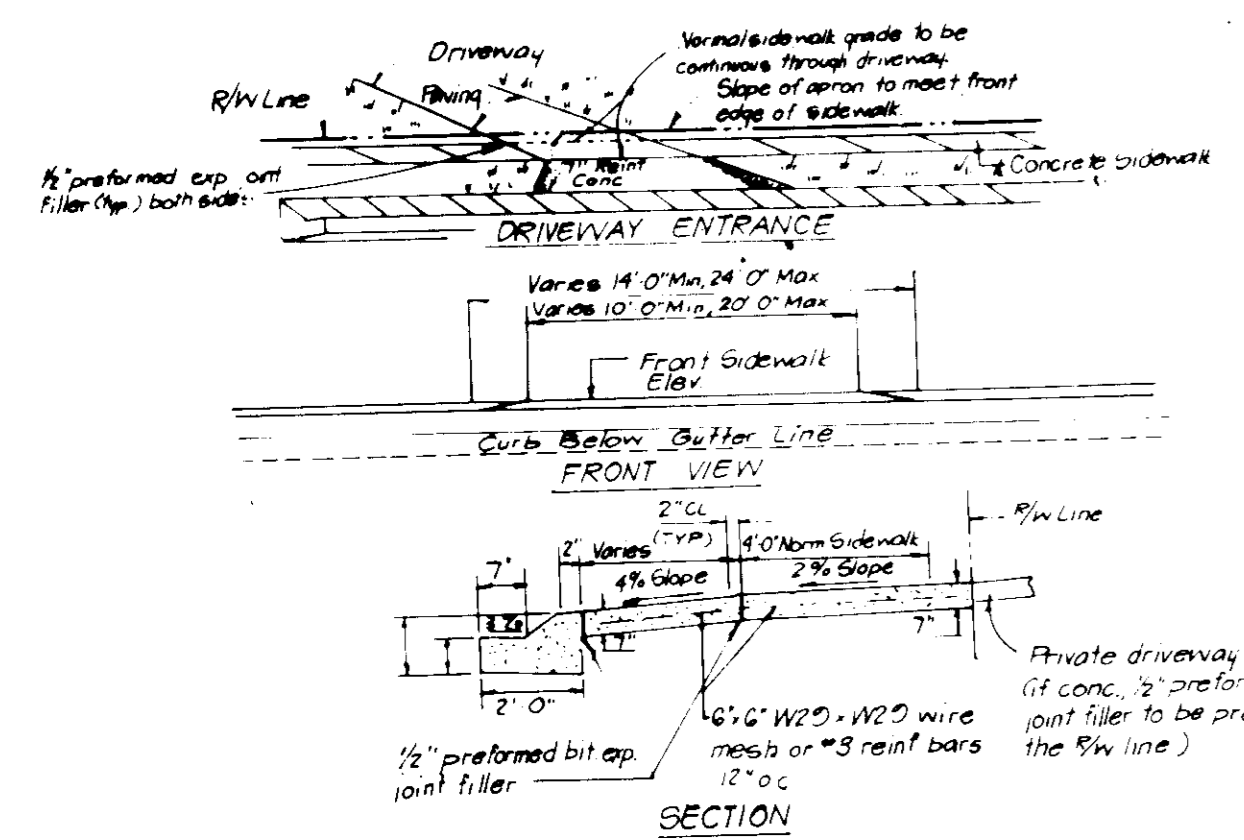 Driveway
Normal sidewalk grade to be
continuous through driveway.
Slope of apron to meet front
edge of sidewalk.
R/W Line
Paving
1/2" preformed exp. joint
filler (typ.) both sides.
7" Reint
Conc
Concrete Sidewalk
DRIVEWAY ENTRANCE
Varies 14'-0" Min, 24'0" Max
Varies 10'-0" Min, 20'0" Max
Front Sidewalk
Elev.
Curb Below Gutter Line
FRONT VIEW
2" CL
(TYP)
R/W Line
7"
2"
Varies
4'-0" Norm Sidewalk
4% Slope
2% Slope
7"
7"
2'-0"
Private driveway
(if conc., 1/2" prefor
joint filler to be pre
the R/W line)
6"x6" W29 x W29 wire
mesh or #3 reinf bars
12" o c
1/2" preformed bit. exp.
joint filler
SECTION